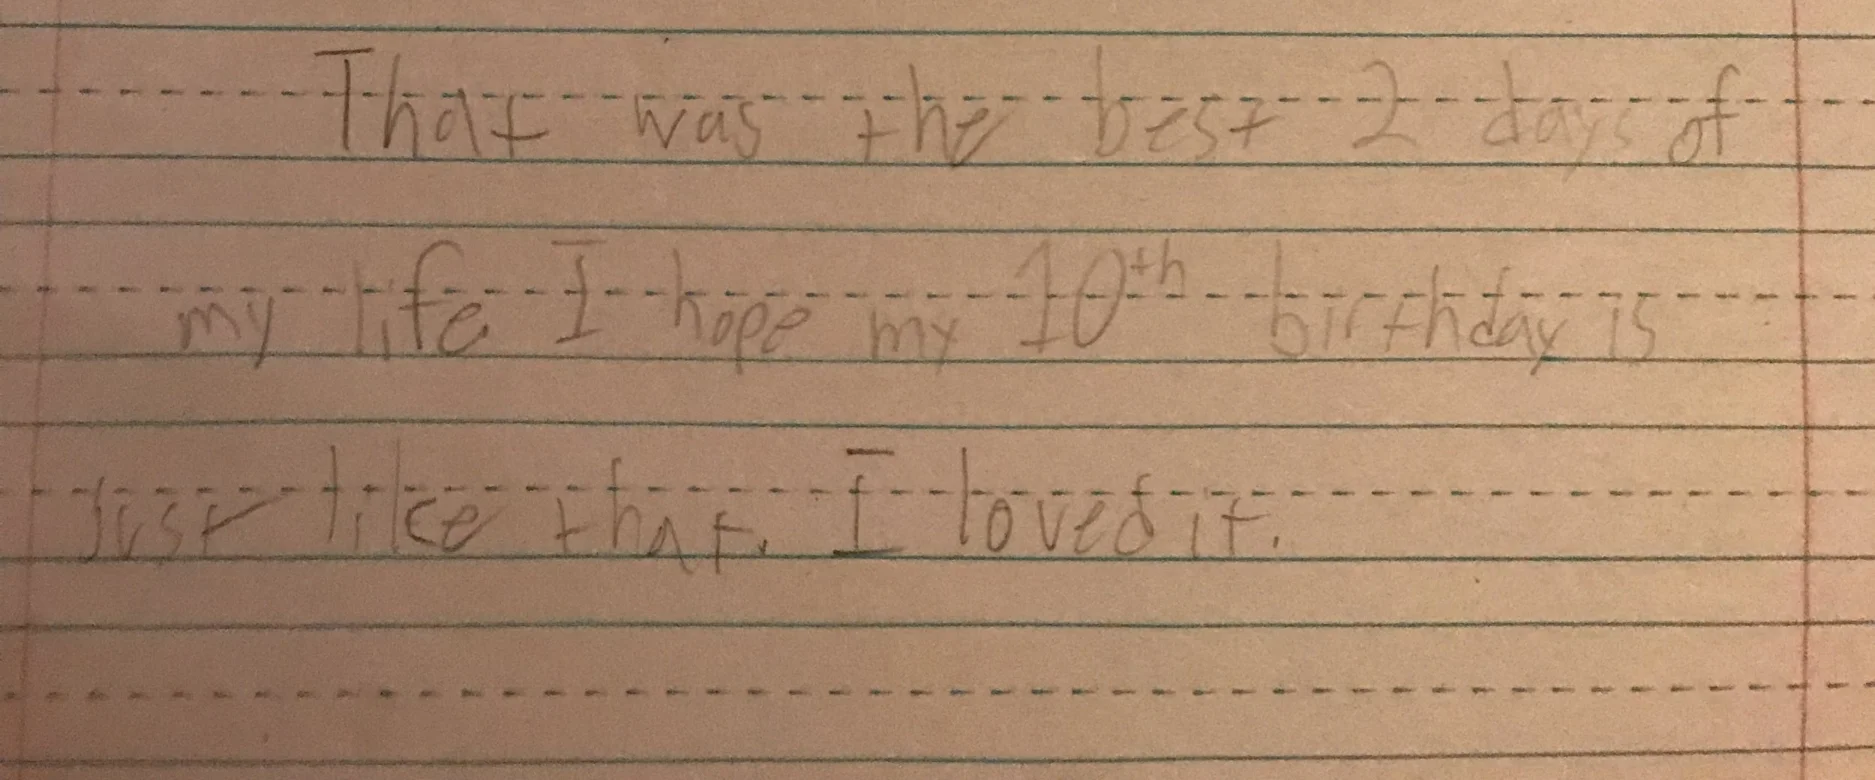 That was the best 2 days of
my life I hope my 10th birthday is
just like that. I loved it.